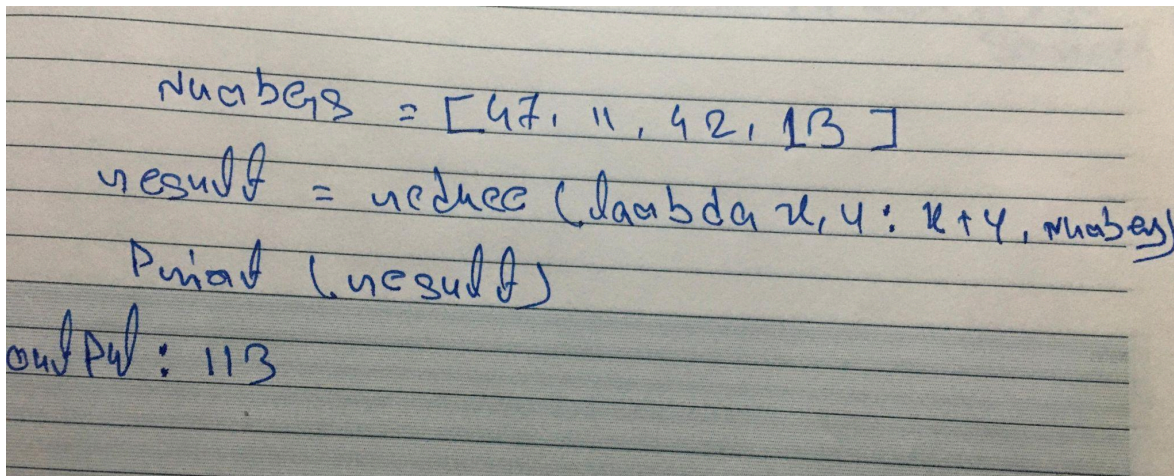 Numbers = [47, 11, 42, 13]
result = reduce (lambda x, y: x+y, Numbers)
Print (result)
output: 113